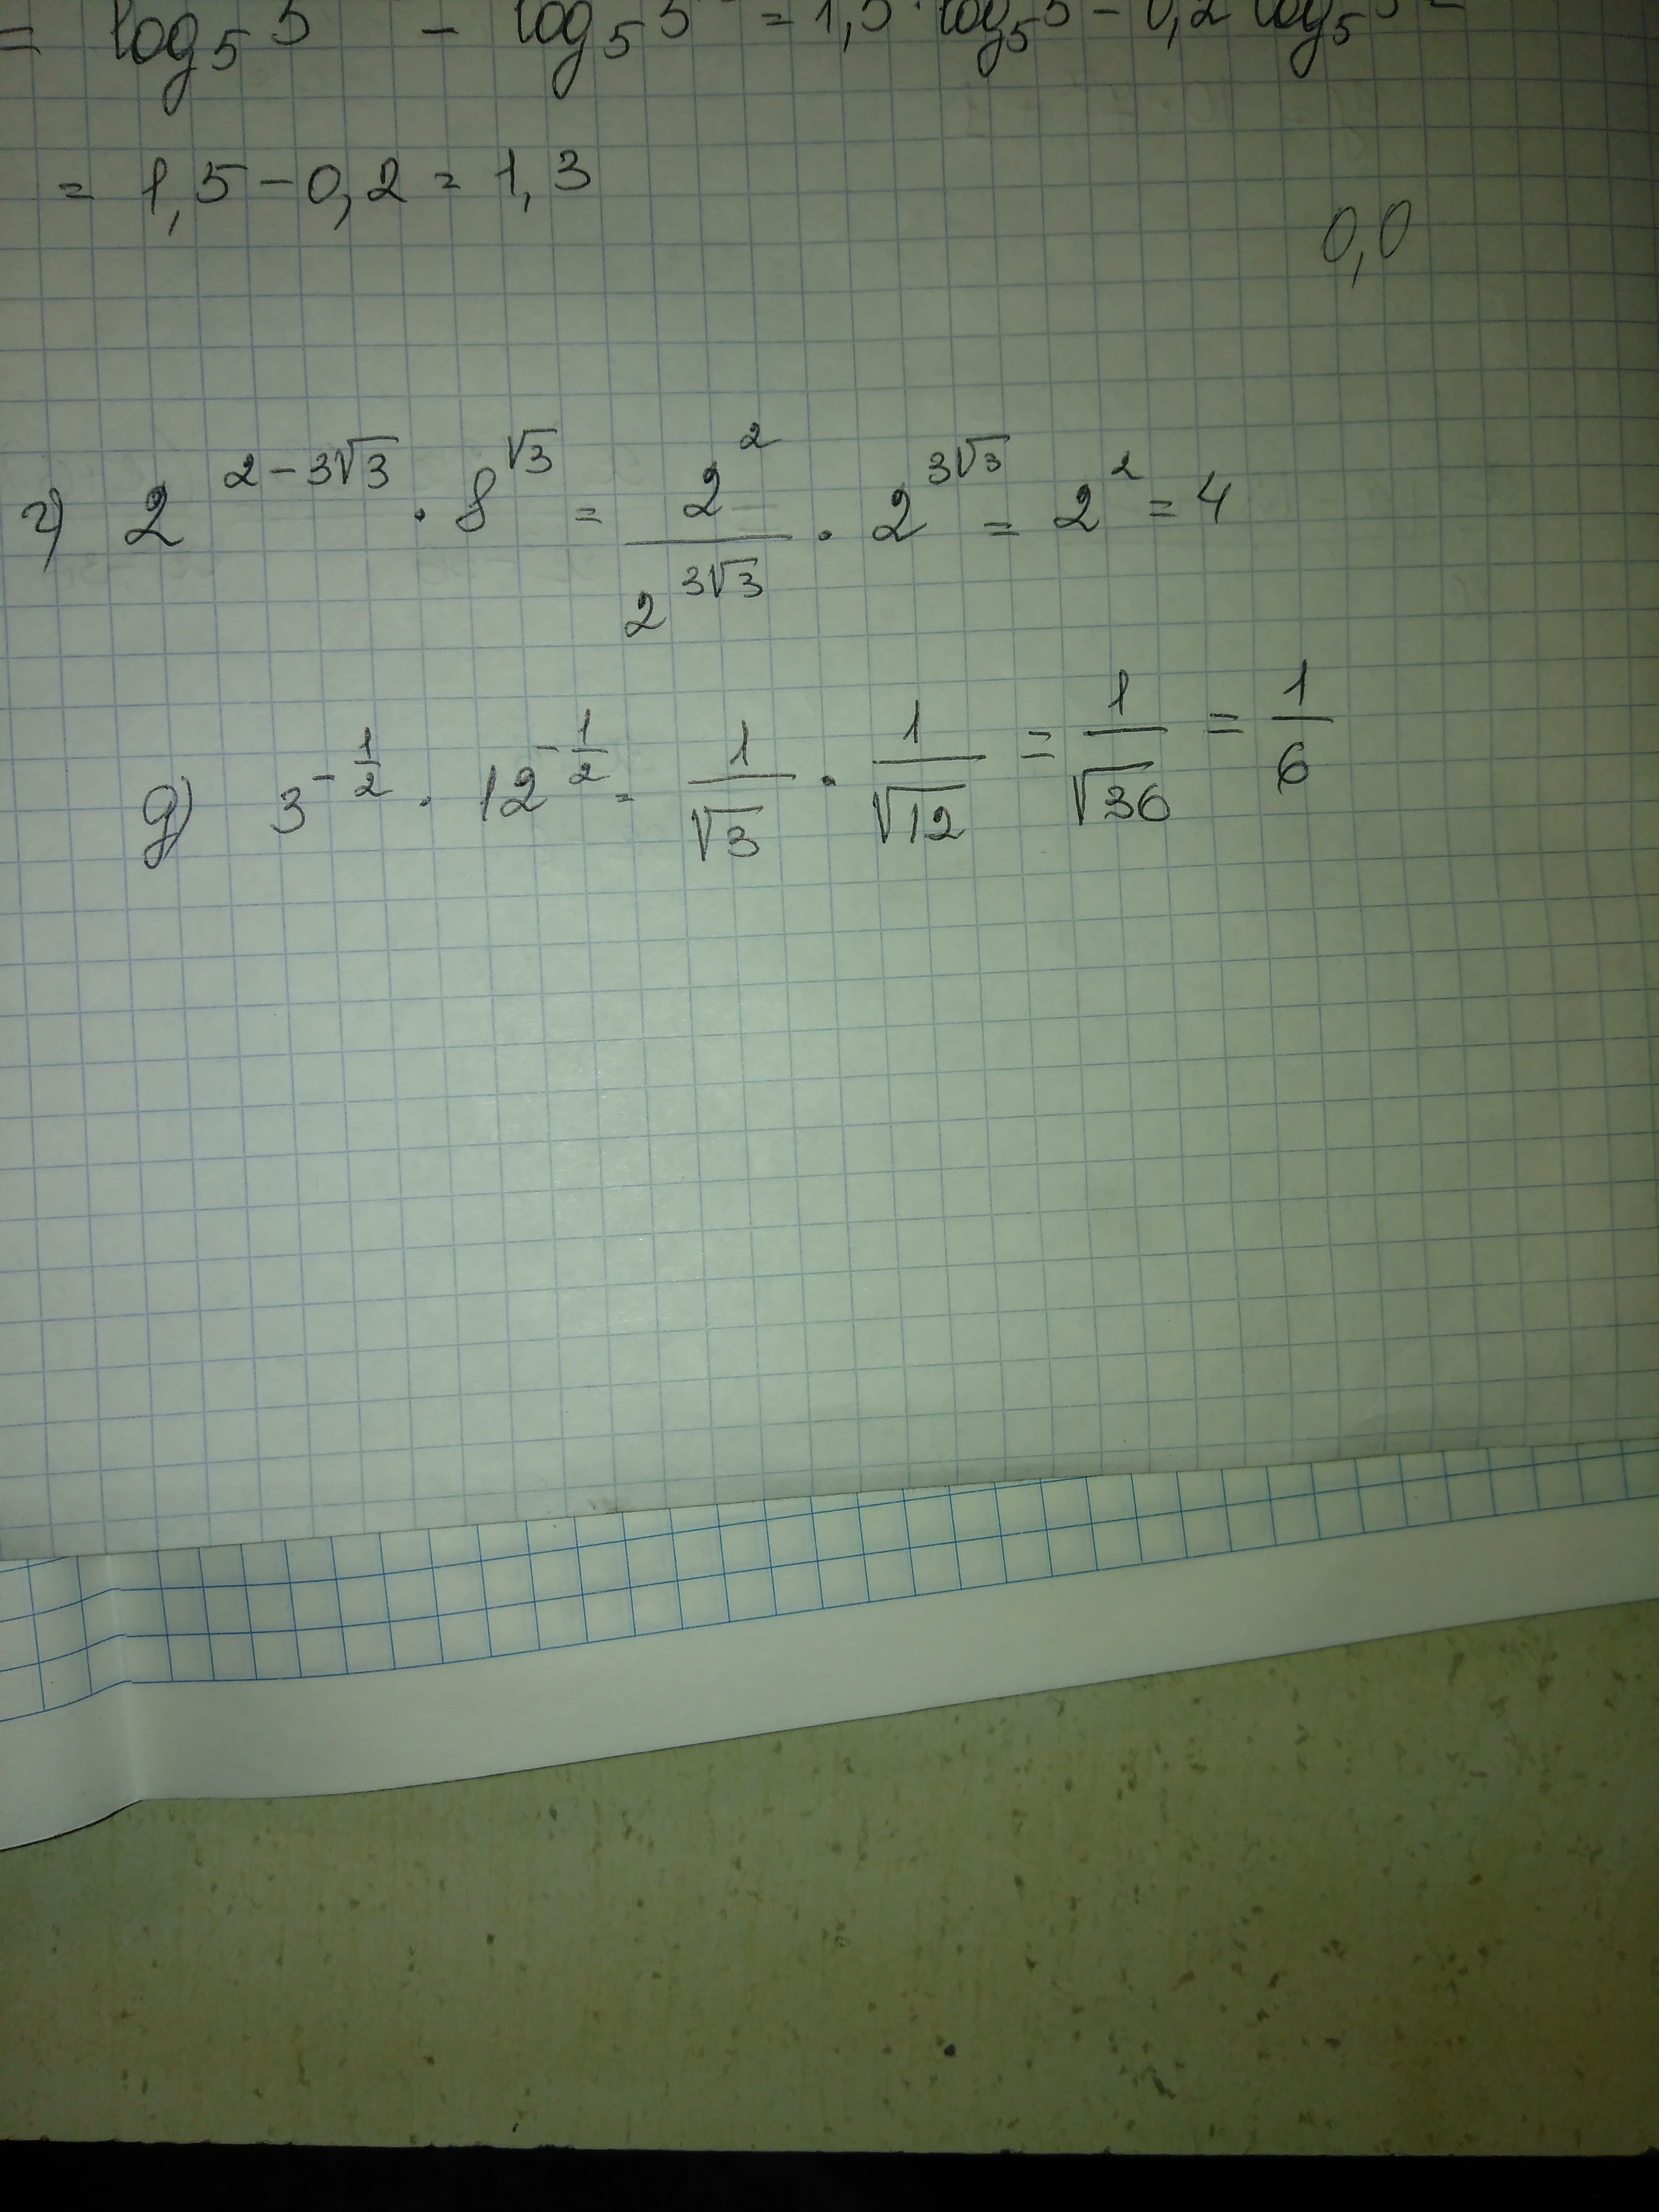 = log₅ 5 - log₅ 5 = 1,5 · log₅ 5 - 0,2 log₅ 5 =
= 1,5 - 0,2 = 1,3
0,0
г) 2^(2-3√3) · 8^(√3) = 2^2 / 2^(3√3) · 2^(3√3) = 2^2 = 4
д) 3^(-1/2) · 12^(-1/2) = 1/√3 · 1/√12 = 1/√36 = 1/6